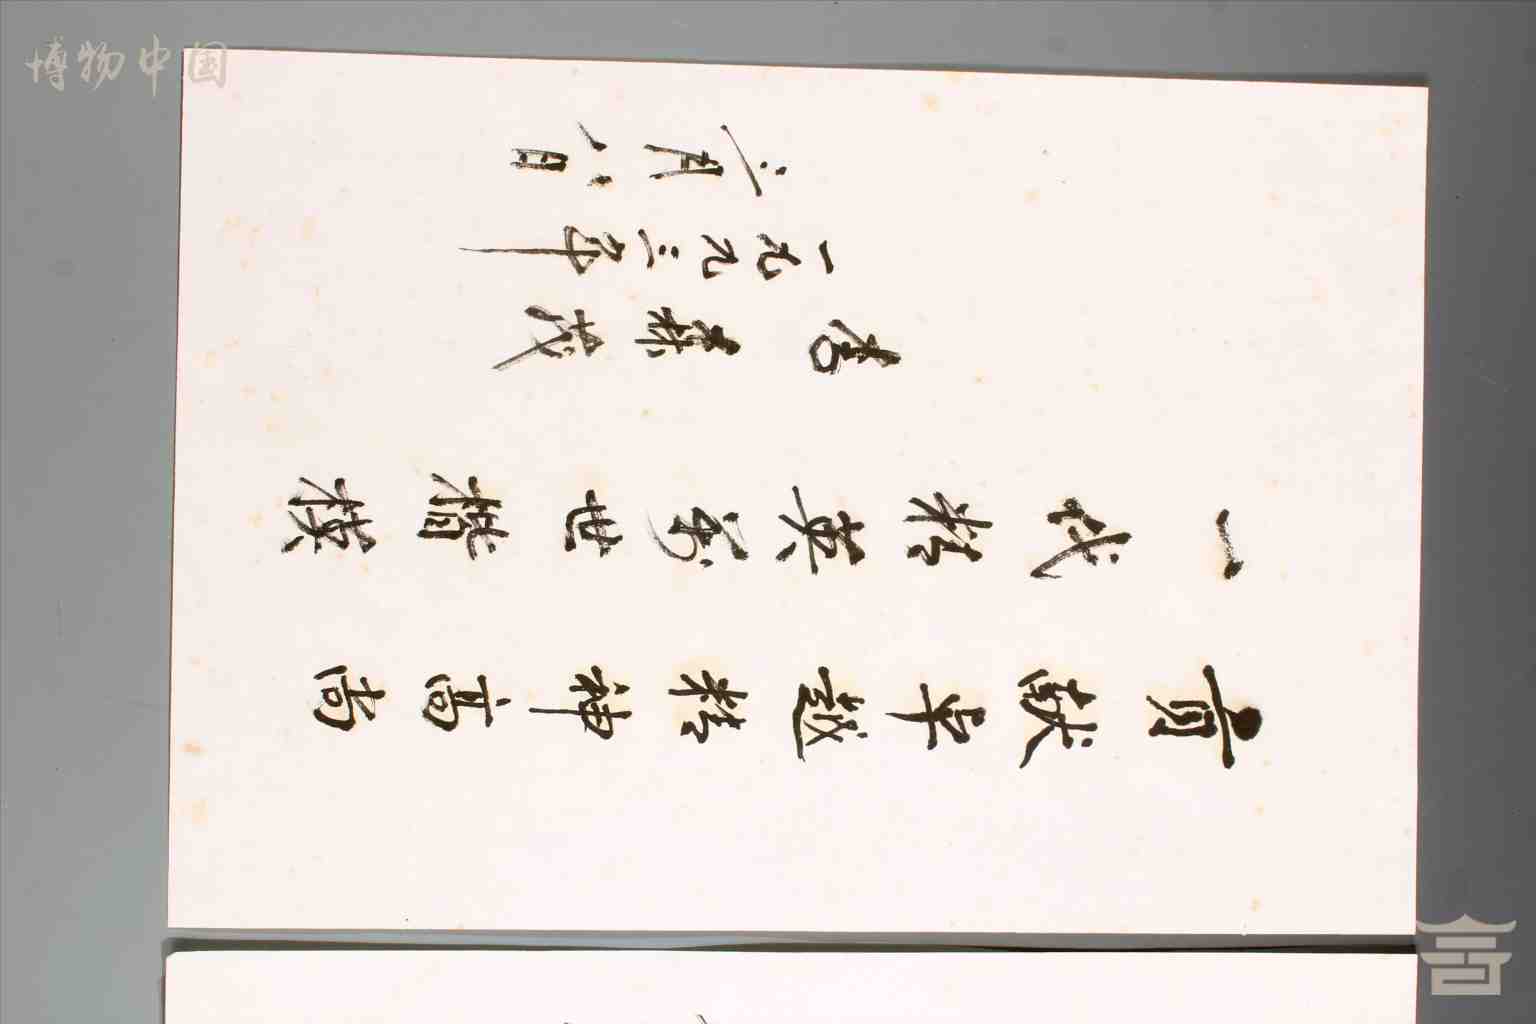 貢献卓越精神高尚
一代精英萬世楷模
喬森茂
一九九三年
三月八日
博物中国